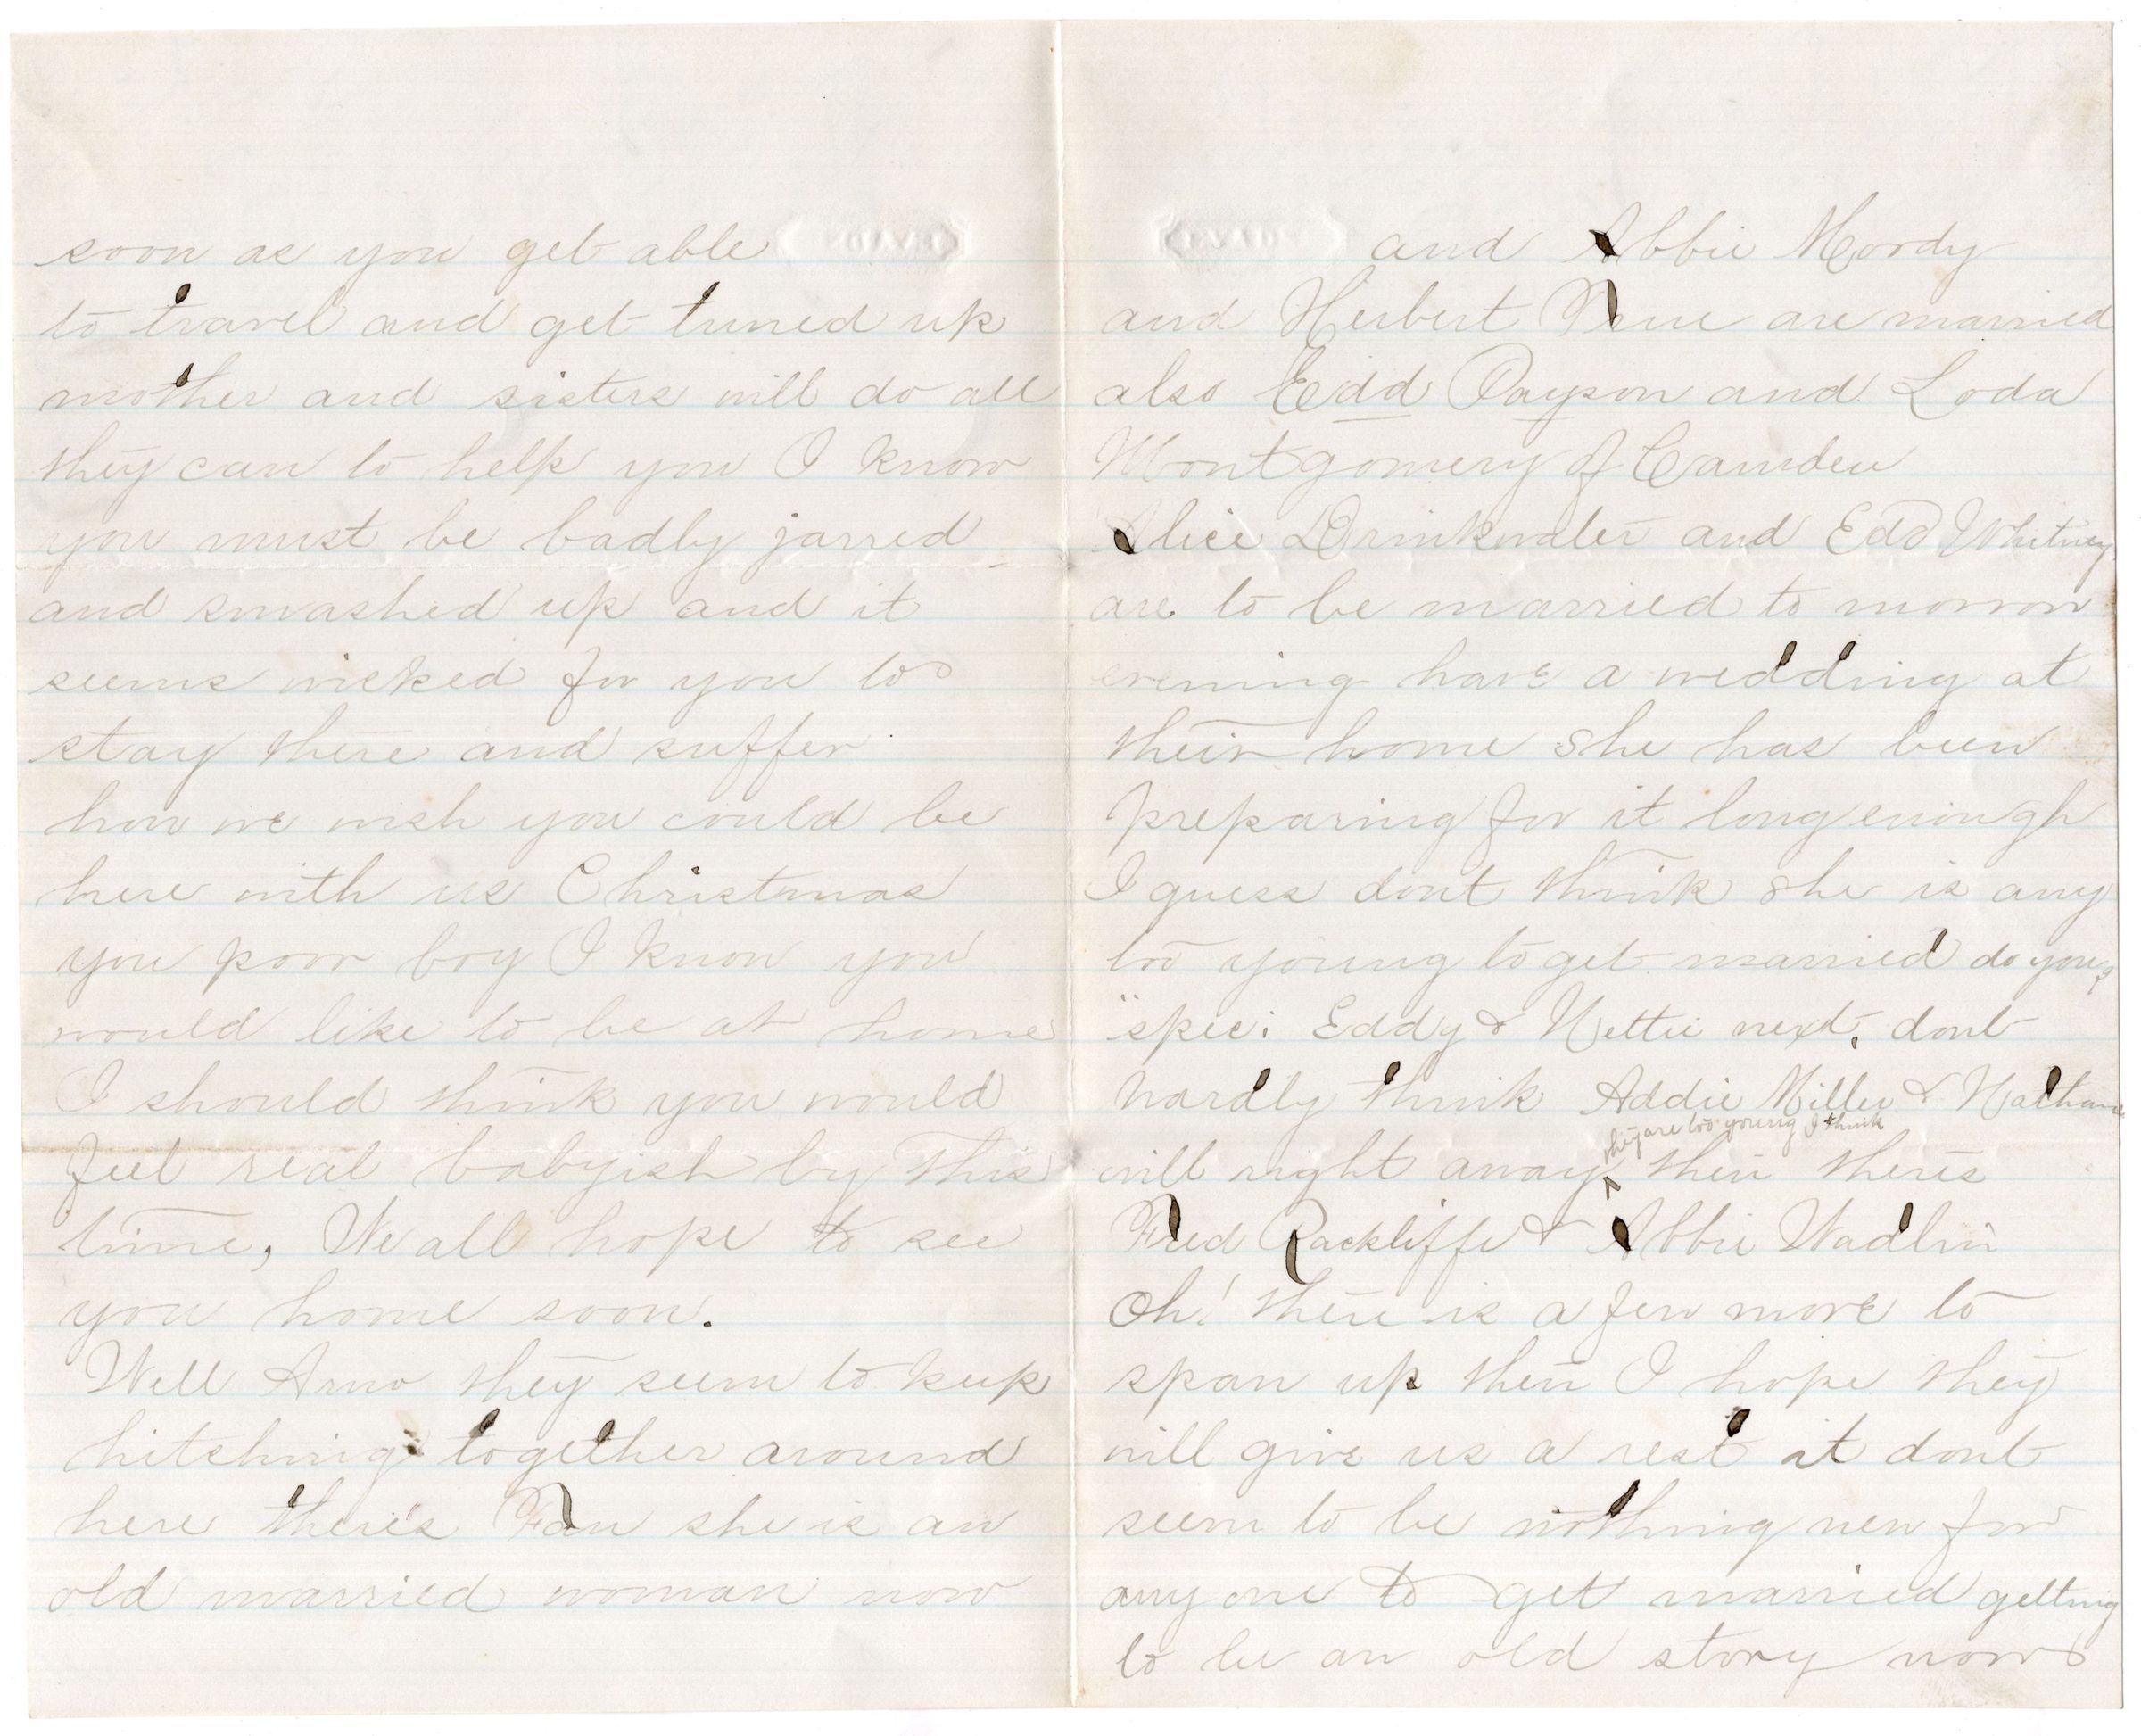 soon as you get able
to travel and get tuned up
mother and sisters will do all
they can to help you I know
you must be badly jarred
and smashed up and it
seems wicked for you to
stay there and suffer
how we wish you could be
here with us Christmas
you poor boy I know you
would like to be at home
I should think you would
feel real babyish by this
time, We all hope to see
you home soon.
Well Arno they seem to keep
hitching together around
here there's Fan she is an
old married woman now
and Abbie Moody
and Herbert are married
also Edd Payson and Loda
Montgomery of Camden
Alice Drinkwater and Edd Whitney
are to be married to morrow
evening have a wedding at
their home she has been
preparing for it long enough
I guess dont think she is any
too young to get married do you?
"spec: Eddy & Nettie next, dont
hardly think Addie Miller & Nathan
they are too young I think
will right away ^ then theres
Fred Rackliffe & Abbie Wadlin
Oh! there is a few more to
span up then I hope they
will give us a rest it dont
seem to be nothing new for
any one to get married getting
to be an old story now